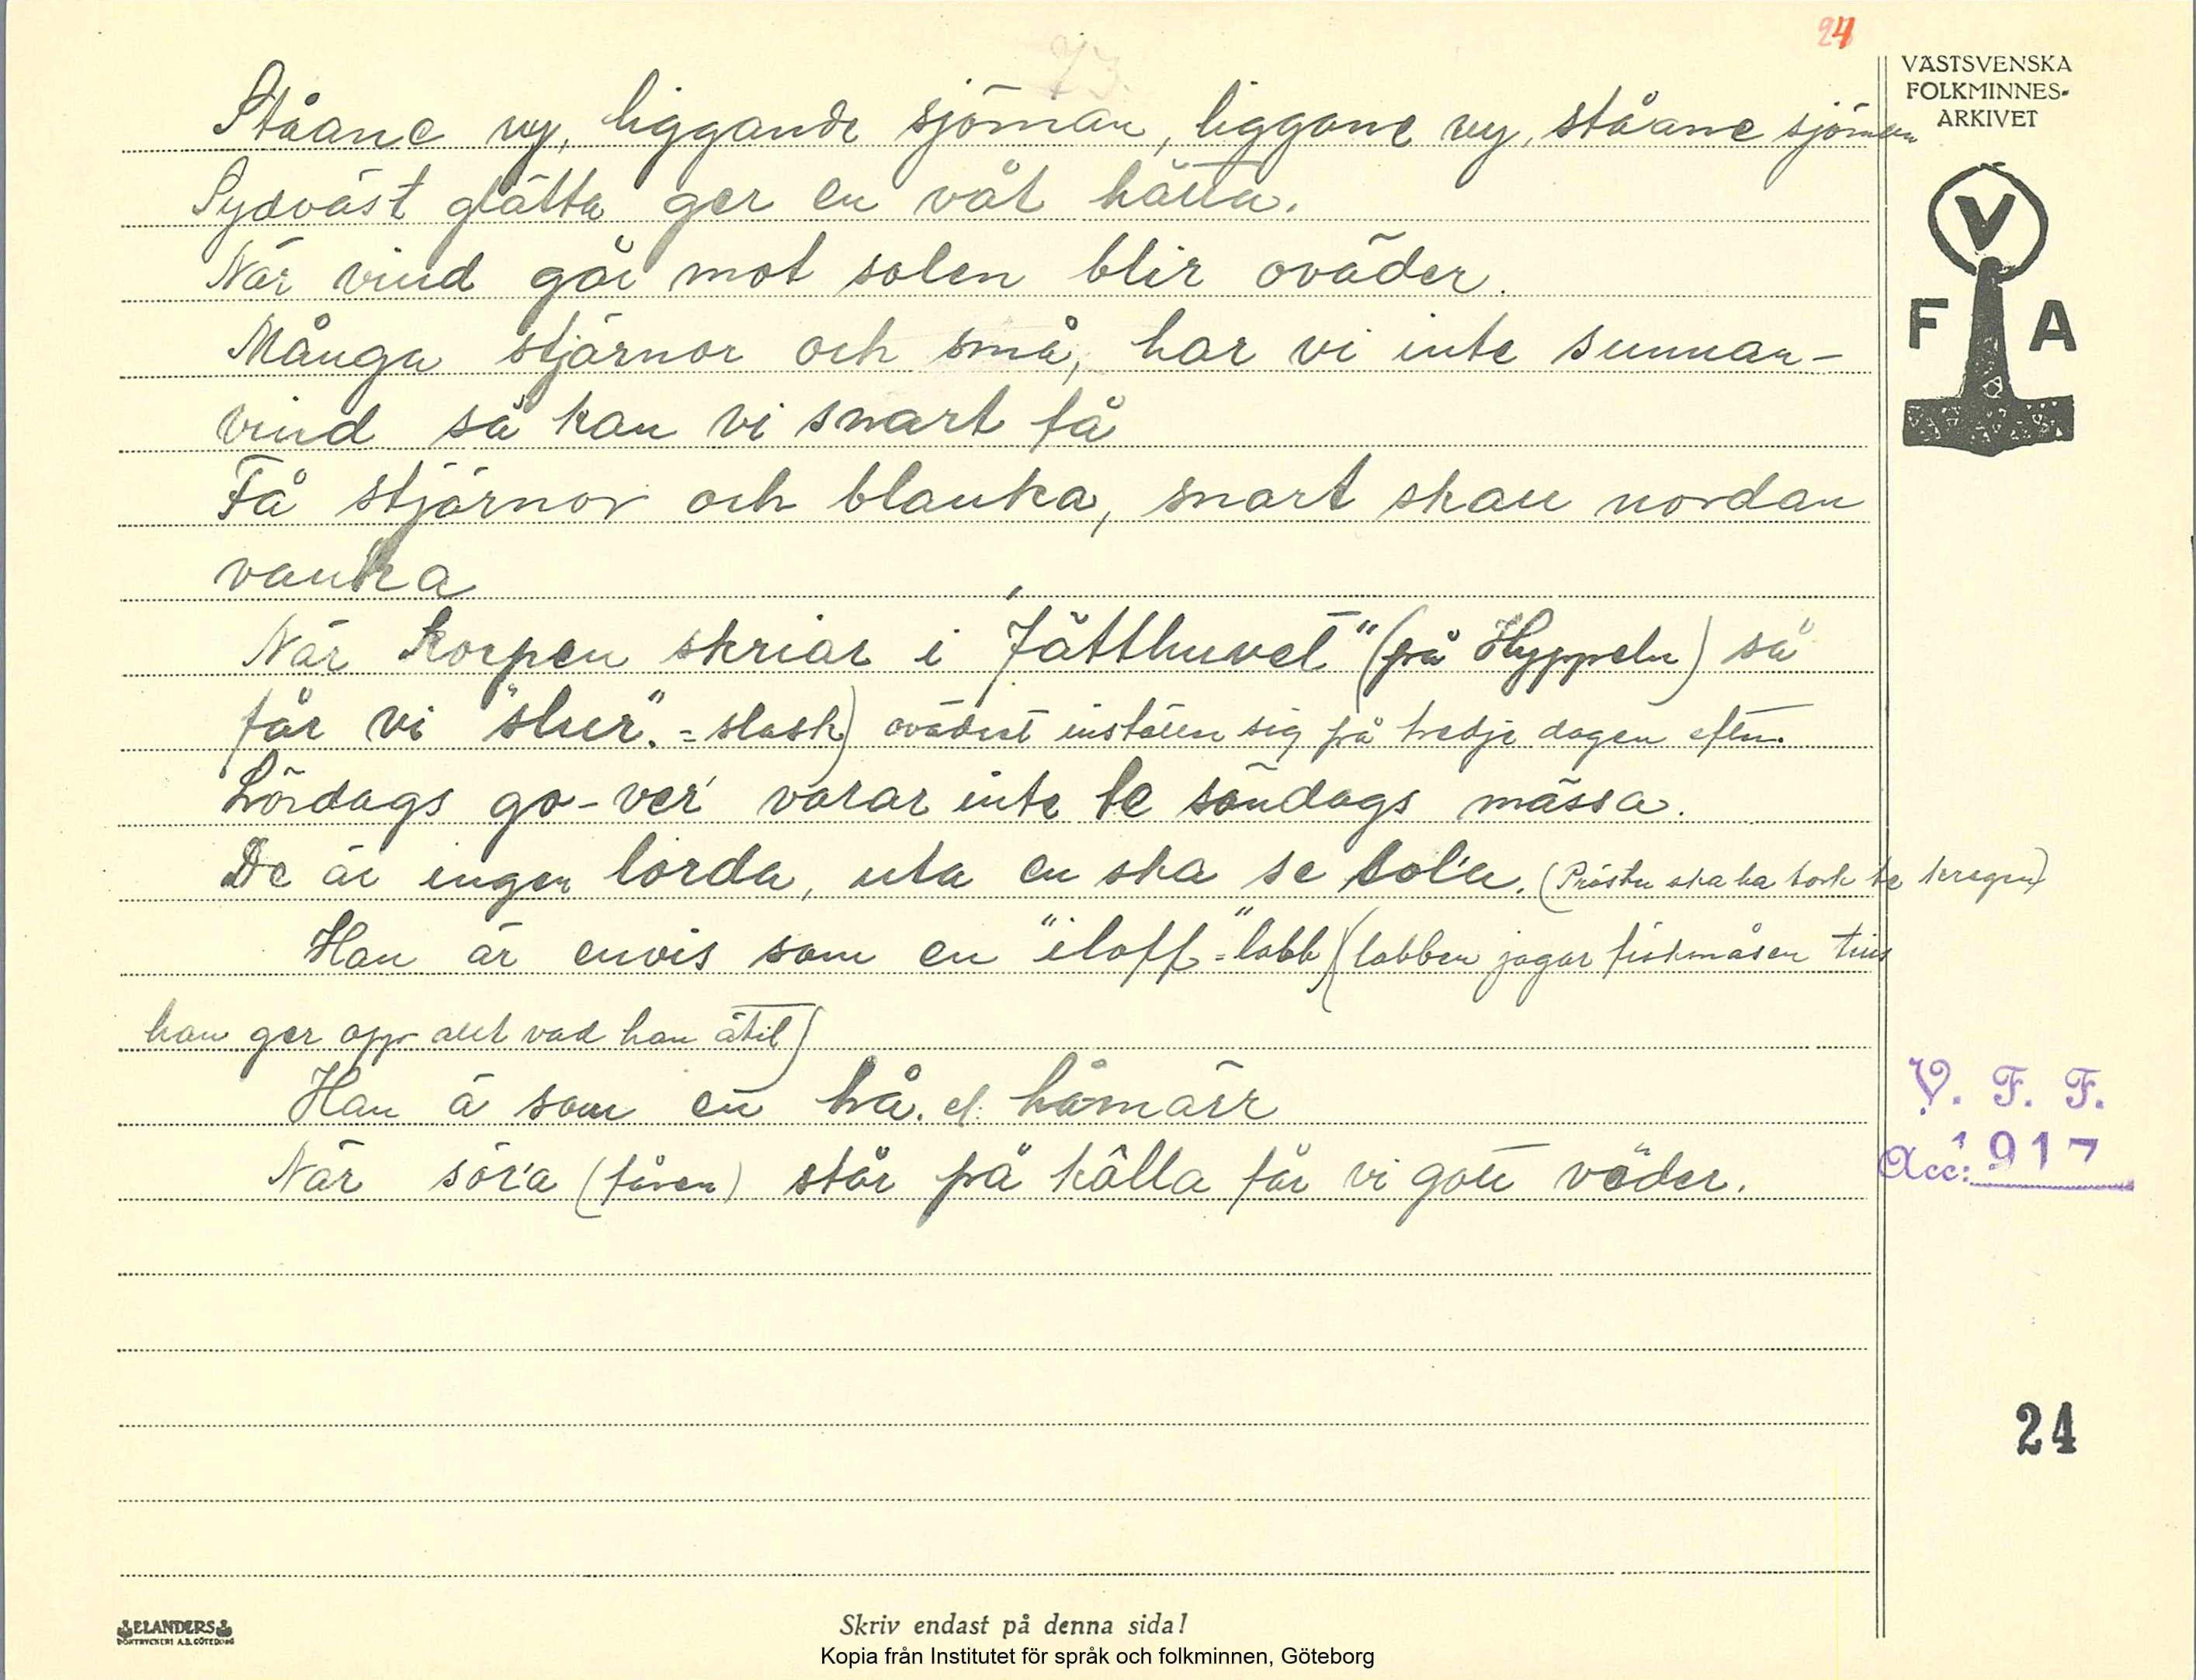 24
73.
VÄSTSVENSKA
FOLKMINNES-
ARKIVET
V
F A
Ståane ny, liggande sjöman, liggane ny, ståane sjöman
Sydväst glätta ger en våt hätta.
När vind går mot solen blir oväder.
Många stjärnor och små, har vi inte sunnan-
vind så kan vi snart få
Få stjärnor och blanka, snart skall nordan
vanka
När korpen skriar i "Jätthuvet" (på Hyppeln) så
får vi "slur". = slask) ovädret inställer sig på tredje dagen efter.
Lördags go-ver' varar inte te söndags mässa.
De är ingen lörda, uta en ska se sol'a. (Prästen ska ha tork te kragen)
Han är envis som en "iloff" = labb) (labben jagar fiskmåsen tills
han ger opp allt vad han ätit)
Han ä som en hå. el. håmärr
När sör'a (fåren) står på kålla får vi gott väder.
V. F. F.
Acc: 1917
24
ELANDERS
BOKTRYCKERI A.B. GÖTEBORG
Skriv endast på denna sida!
Kopia från Institutet för språk och folkminnen, Göteborg